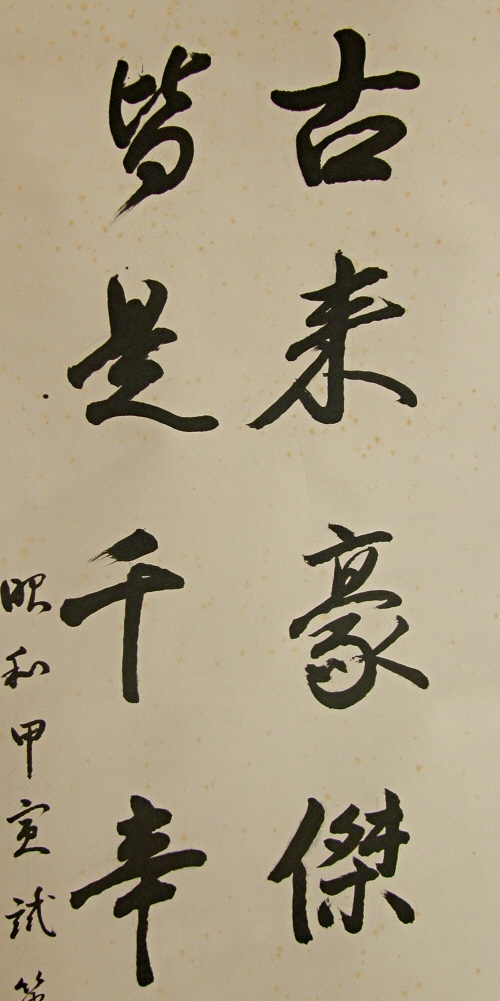 古来豪傑
皆是千辛
昭和甲寅試筆